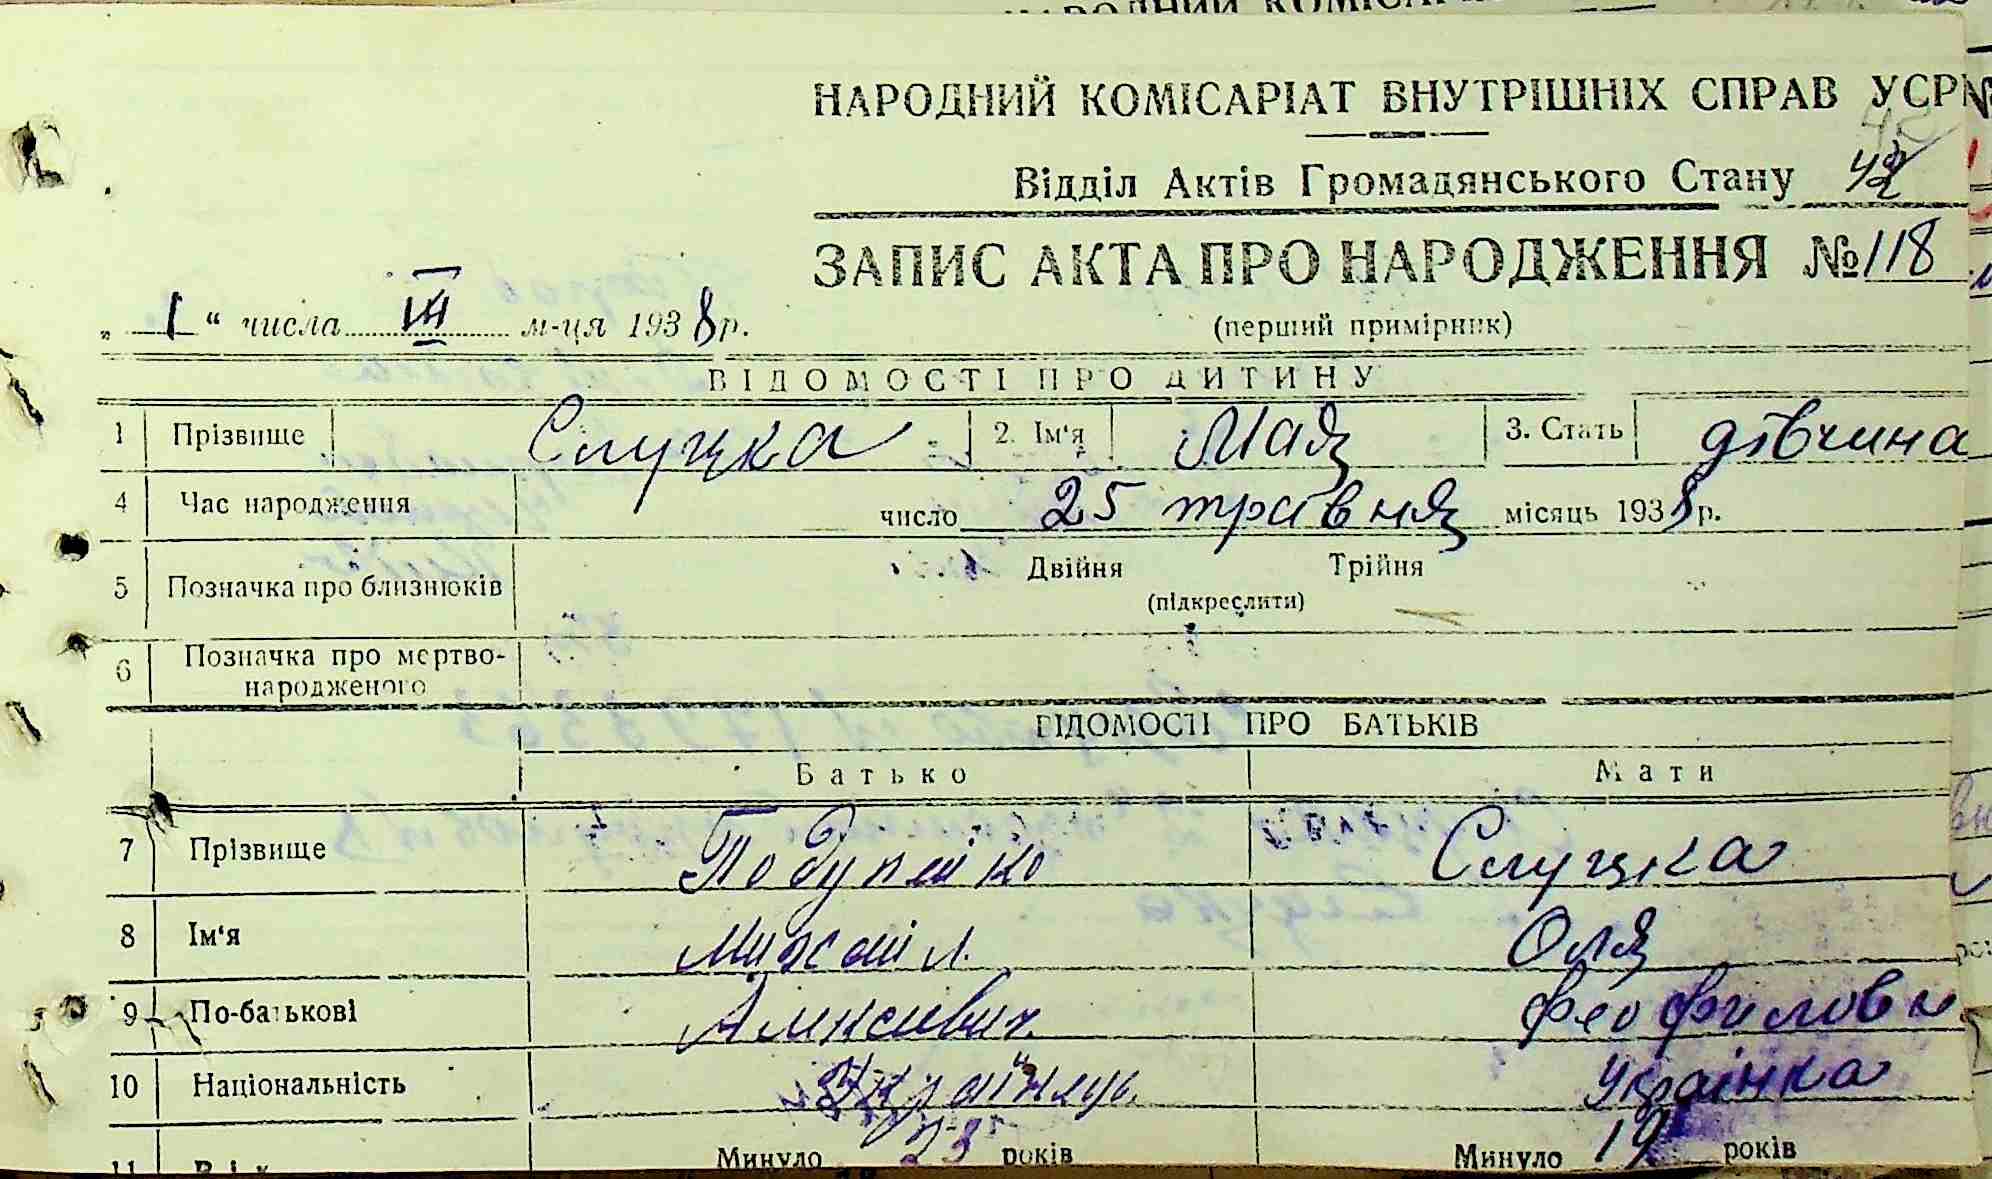 НАРОДНИЙ КОМІСАРІАТ ВНУТРІШНІХ СПРАВ УСРР
Відділ Актів Громадянського Стану 42
ЗАПИС АКТА ПРО НАРОДЖЕННЯ № 118
„1“ числа VII м-ця 1938 р. (перший примірник)
ВІДОМОСТІ ПРО ДИТИНУ
1 Прізвище Слуцка 2. Ім'я Мая 3. Стать дівчина
4 Час народження число 25 травня місяць 1938 р.
Двійня Трійня
5 Позначка про близнюків (підкреслити)
6 Позначка про мертво-
народженого
ВІДОМОСТІ ПРО БАТЬКІВ
Батько Мати
7 Прізвище Слуцка
8 Ім'я Михаил Оля
9 По-батькові Аликсиевич Феофиловн
10 Національність Українець Українка
11 Вік Минуло 23 років Минуло 19 років